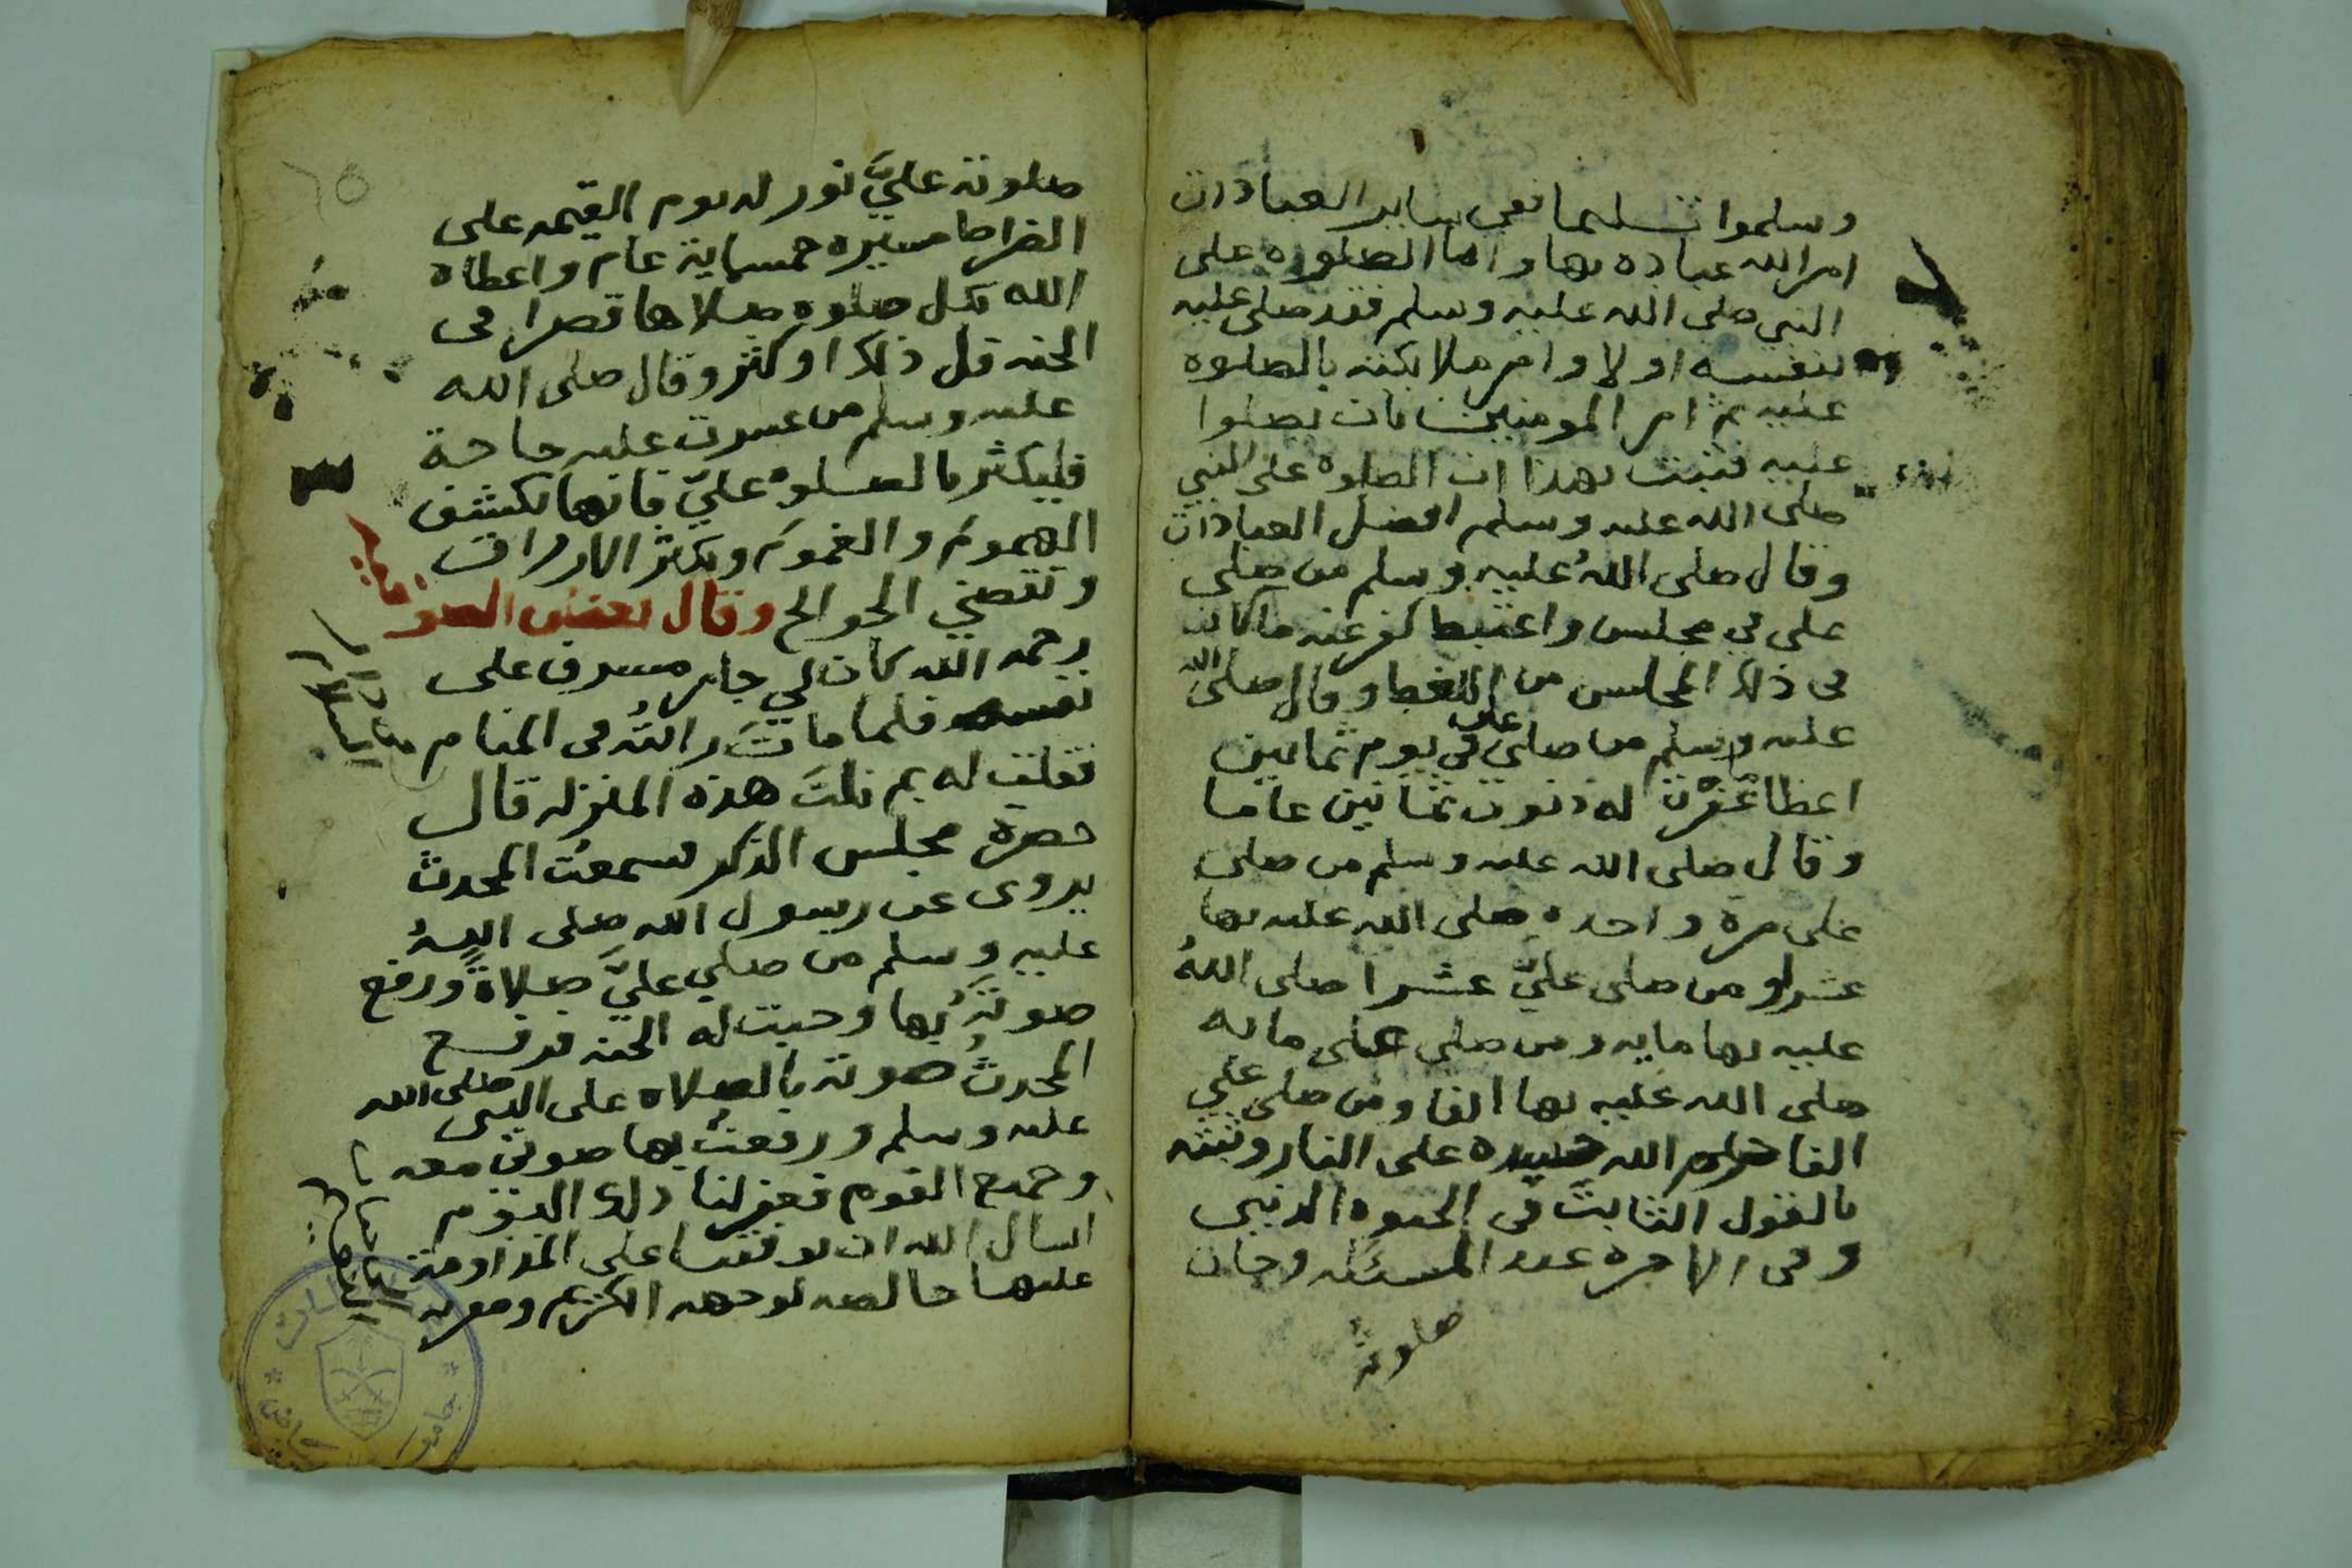 وسلموا تسليما ففي ساير العبادات
امر الله عباده بها واما الصلوة على
النبي صلى الله عليه وسلم فقد صلى عليه
بنفسه اولا وامر ملايكته بالصلوة
عليه ثم امر المومنين بان يصلوا
عليه فثبت بهذا ان الصلوة على النبي
صلى الله عليه وسلم افضل العبادات
وقال صلى الله عليه وسلم من صلى
على في مجلس كفر عنه ما كان
في ذلك المجلس من اللغط وقال صلى الله
عليه وسلم من صلى على في يوم ثمانين
غفرت له ذنوب ثمانين عاما
وقال صلى الله عليه وسلم من صلى
على مرة واحدة صلى الله عليه بها
عشرا ومن صلى عليّ عشرا صلى اللهُ
عليه بها مايه ومن صلى على مايه
صلى الله عليه بها الفا ومن صلى علي
الفا حرم الله جسده على النار وثبته
بالقول الثابت في الحيوه الدنيى
وفي الاخره عند المسئله وجات
صلوته
٦٥
صلوته عليَّ نور له يوم القيمه على
الصراط مسيره خمسماية عام واعطاه
الله بكل صلوه صلاها قصرا في
الجنه قل ذلك او كثر وقال صلى الله
عليه وسلم من عسرت عليه حاجة
فليكثر بالصلوة عليّ فانها تكشف
الهموم والغموم وتكثر الارزاق
وتقضي الحوايج وقال بعض الصوفيه
رحمه الله كان لي جار مسرف على
نفسه فلما مات رايتُه في المنام
فقلت له بم نلتَ هذه المنزله قال
حضرة مجلس الذكر فسمعتُ المحدث
يروى عن رسول الله صلى اللهُ
عليه وسلم من صلى عليَّ صلاةً ورفع
صوتَه بها وجبت له الجنه فرفع
المحدثُ صوته بالصلاه على النبي صلى الله
عليه وسلم ورفعتُ بها صوتي معه
وجميع القوم فغفر لنا ذلك اليوم
اسال الله ان يوفقنا على المداومة
عليها خالصه لوجهه الكريم